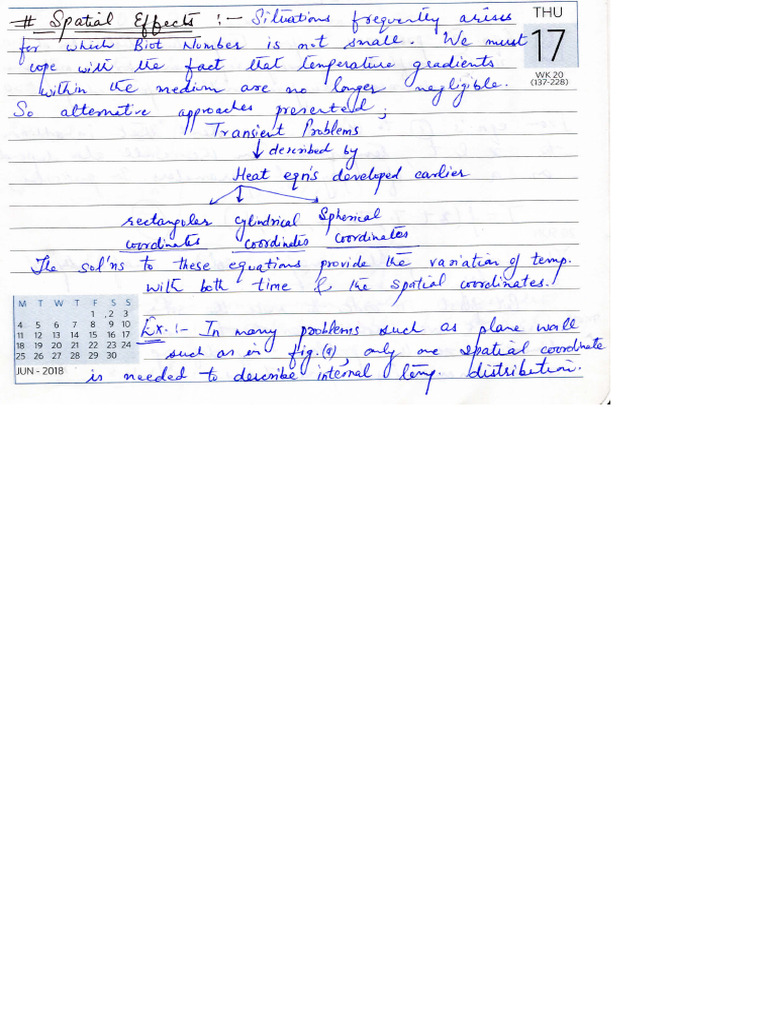 # Spatial Effects :- Situations frequently arises
THU
for which Biot Number is not small. We must
17
cope with the fact that temperature gradients
WK 20
(137-228)
within the medium are no longer negligible.
So alternative approaches presented;
Transient Problems
↓ described by
Heat eqn's developed earlier
rectangular cylindrical Spherical
coordinates coordinates coordinates
The sol'ns to these equations provide the variation of temp.
with both time & the spatial coordinates.
M T W T F S S
1 2 3
4 5 6 7 8 9 10
11 12 13 14 15 16 17
18 19 20 21 22 23 24
25 26 27 28 29 30
JUN - 2018
Ex. :- In many problems such as plane wall
such as in fig.(a), only one spatial coordinate
is needed to describe internal temp. distribution.